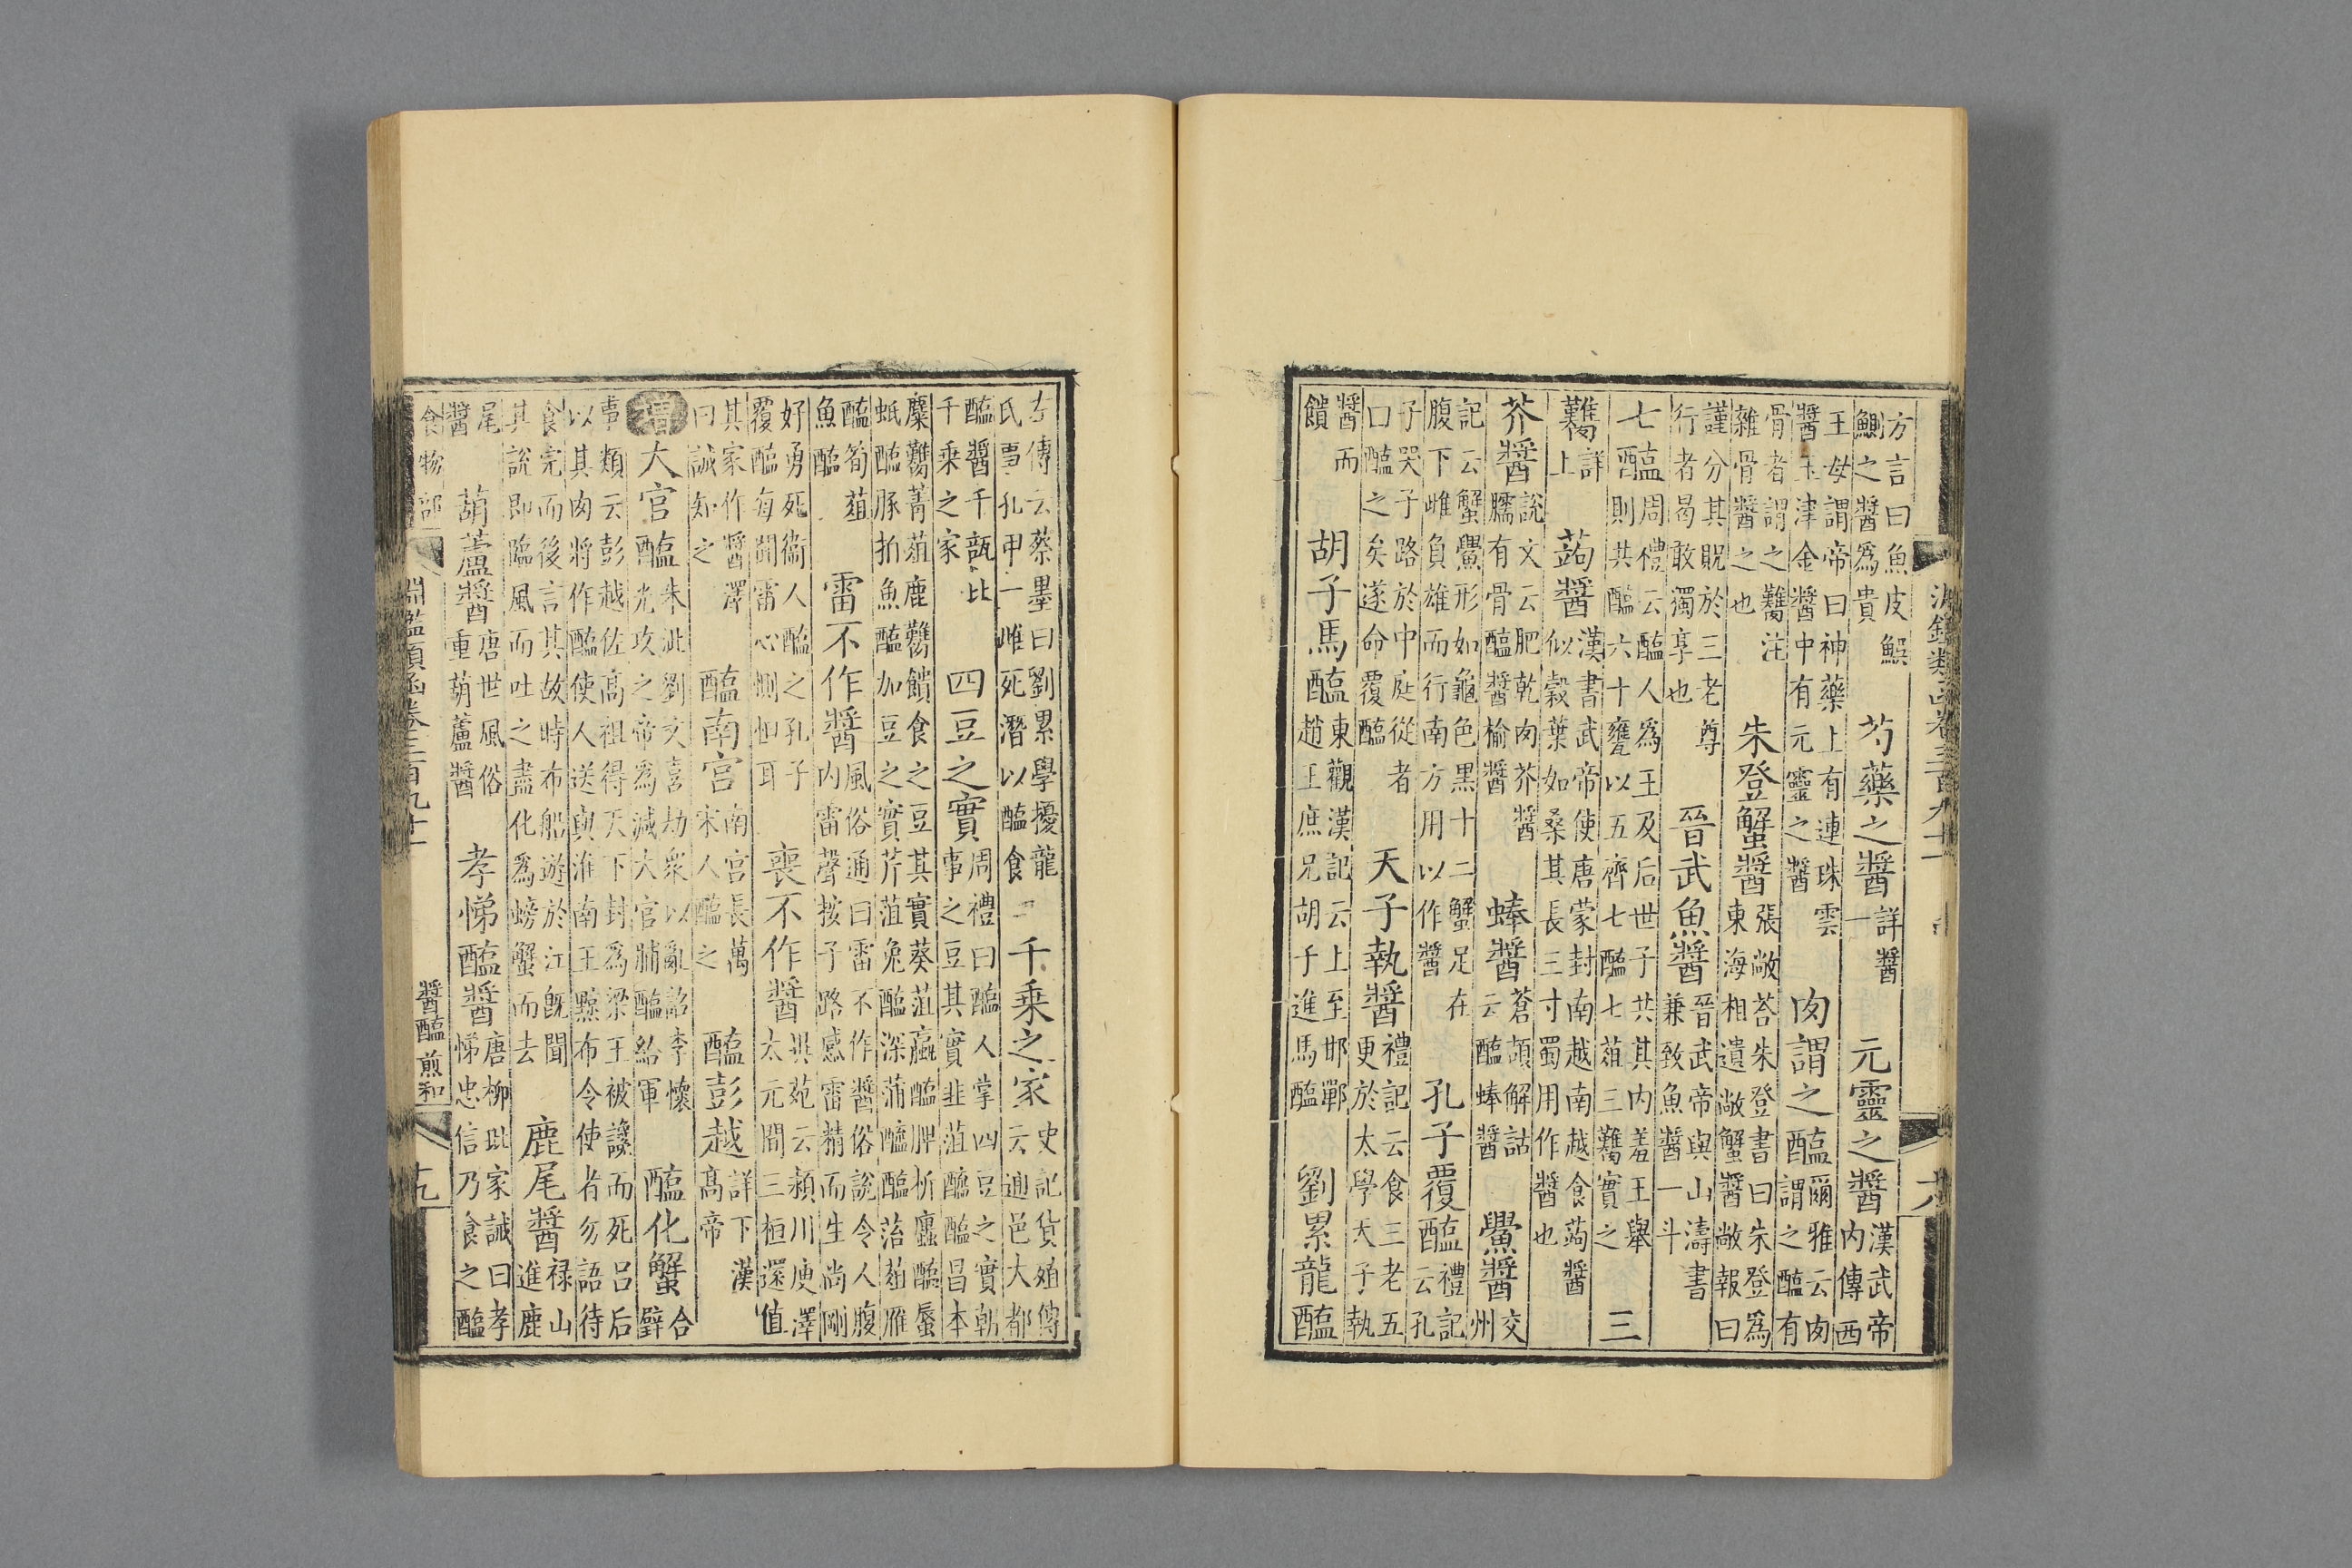 方言曰魚皮鯸
鰂之醬為貴
芍藥之醬
詳醬
一
元靈之醬
漢武帝
内傳西
王母謂帝曰神藥上有連珠雲
醬玉津金醬中有元靈之醬
肉謂之醢
爾雅云肉
謂之醢有
骨者謂之臡注
雜骨醬之也
朱登蟹醬
張敞荅朱登書曰朱登為
東海相遺敞蟹醬敞報曰
謹分其貺於三老尊
行者曷敢獨享也
晉武魚醬
晉武帝與山濤書
兼致魚醬一斗
七醢
周禮云醢人為王及后世子共其内羞王舉
則共醢六十甕以五齊七醢七菹三臡實之
三
臡
詳
上
蒟醬
漢書武帝使唐蒙封南越南越食蒟醬
似穀葉如桑其長三寸蜀用作醬也
芥醬
說文云肥乾肉芥醬
臑有骨醢醬榆醬
蜯醬
蒼頡解詁
云醢蜯醬
鱟醬
交
州
記云蟹鱟形如龜色黑十二蟹足在
腹下雌負雄而行南方用以作醬
孔子覆醢
禮記
云孔
子哭子路於中庭從者
口醢之矣遂命覆醢
天子執醬
禮記云食三老五
更於太學天子執
醬而
饋
胡子馬醢
東觀漢記云上至邯鄲
趙王庶兄胡子進馬醢
劉累龍醢
左傳云蔡墨曰劉累學擾龍
氏事孔甲一雌死潛以醢食二
千乗之家
史記貨殖傳
云通邑大都
醢醬千瓿比
千乗之家
四豆之實
周禮曰醢人掌四豆之實朝
事之豆其實韭菹醓醢昌本
麋臡菁菹鹿臡饋食之豆其實葵菹蠃醢脾析蠯醢蜃
蚳醢豚拍魚醢加豆之實芹菹兔醢深蒲醓醢箈菹雁
醢筍菹
魚醢
雷不作醬
風俗通曰雷不作醬俗說令人腹
内雷聲按子路感雷精而生尚剛
好勇死衞人醢之孔子
覆醢每聞雷心惻怛耳
喪不作醬
異苑云潁川庾澤
太元間三桓還值
其家作醬澤
曰誠知之
醢南宮
南宮長萬
宋人醢之
醢彭越
詳下漢
高帝
增
大官醢
朱泚劉文喜劫衆以亂詔李懷
光攻之帝為減大官脯醢給軍
醢化蟹
合
璧
事類云彭越佐高祖得天下封為梁王被讒而死呂后
以其肉將作醢使人送與淮南王黥布令使者勿語待
食完而後言其故時布船遊於江旣聞
其說即臨風而吐之盡化為螃蟹而去
鹿尾醬
禄山
進鹿
尾
醬
葫蘆醬
唐世風俗
重葫蘆醬
孝悌醢醬
唐柳玭家誡曰孝
悌忠信乃食之醢
食物部
淵鑑類函卷三百九十一
醬醢煎和
十九